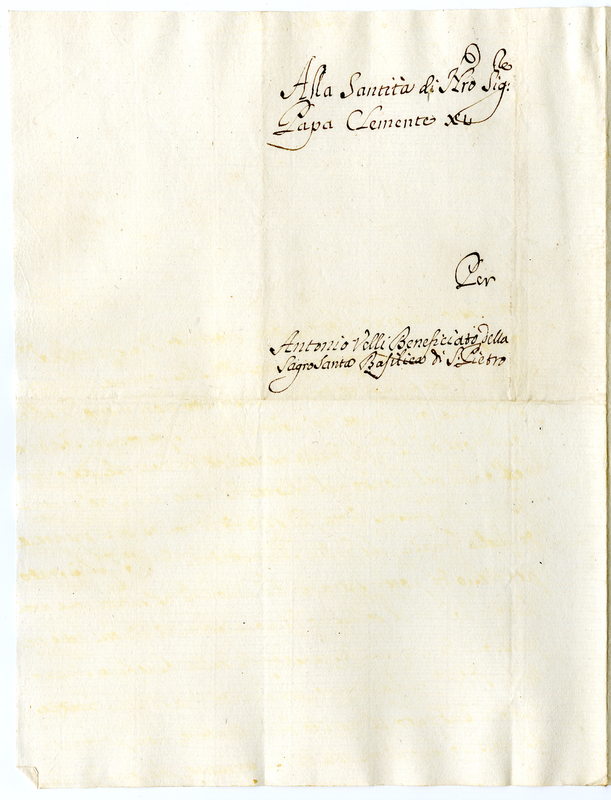 Alla Santità di Nro Sig:re
Papa Clemente XII
Per
Antonio Velli Beneficiato della
SagroSanta Basilica di S. Pietro